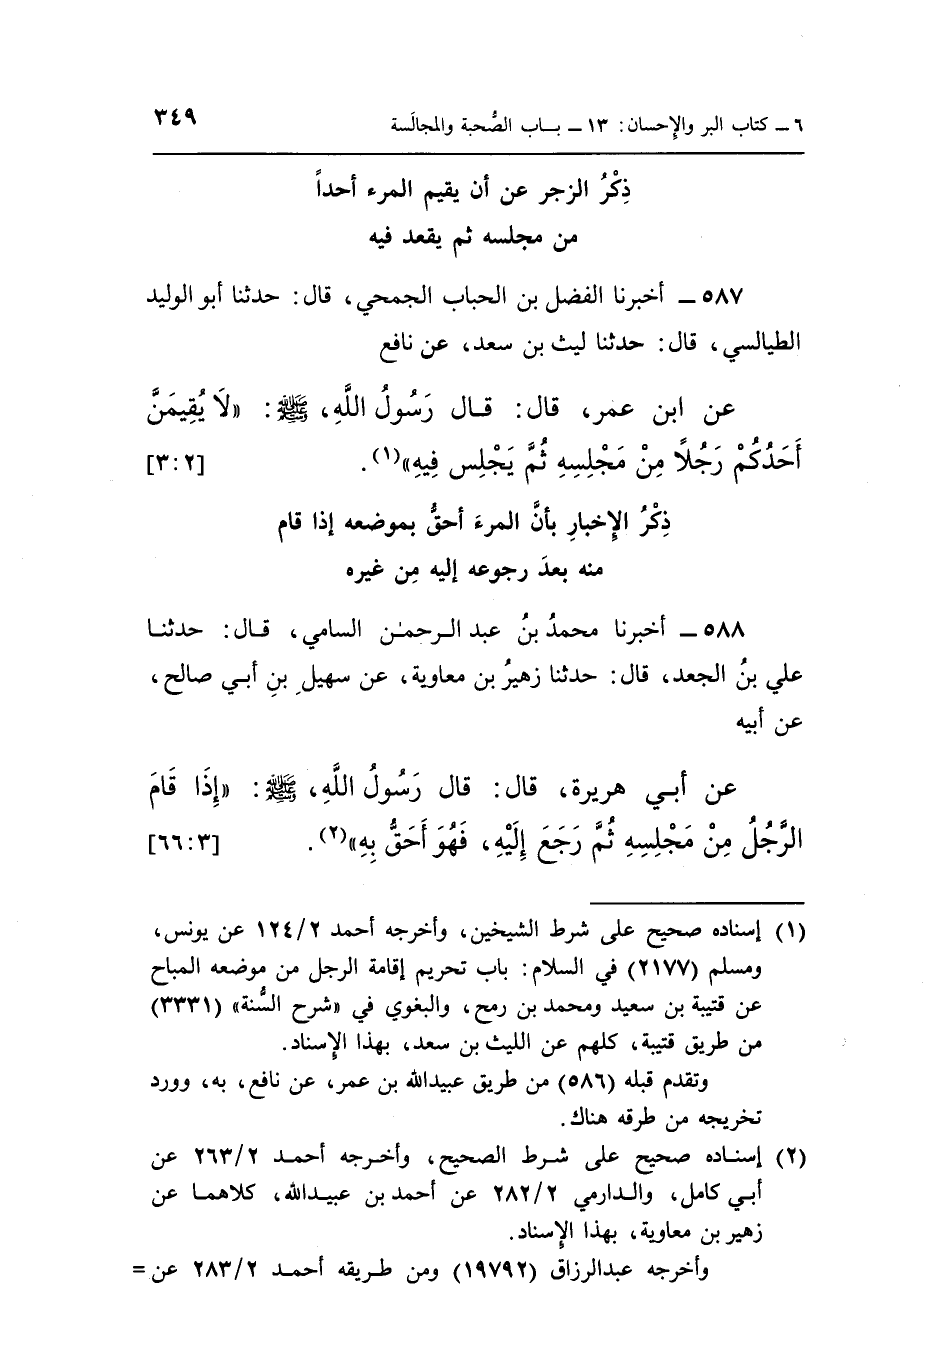 ٦ ــ كتاب البر والإحسان: ١٣ ــ بــاب الصُّحبة والمجالَسة ٣٤٩
ذِكْرُ الزجر عن أن يقيم المرء أحداً
من مجلسه ثم يقعد فيه
٥٨٧ ــ أخبرنا الفضل بن الحباب الجمحي، قال: حدثنا أبو الوليد
الطيالسي، قال: حدثنا ليث بن سعد، عن نافع
عن ابن عمر، قال: قـال رَسُولُ اللَّهِ، ﷺ: «لَا يُقِيمَنَّ
أَحَدُكُمْ رَجُلًا مِنْ مَجْلِسِهِ ثُمَّ يَجْلِس فِيهِ»(١). [٣:٢]
ذِكْرُ الإخبارِ بأنَّ المرءَ أحقُّ بموضعه إذا قام
منه بعدَ رجوعه إليه مِن غيره
٥٨٨ ــ أخبرنا محمدُ بنُ عبد الـرحمـٰن السامي، قـال: حدثنـا
علي بنُ الجعد، قال: حدثنا زهيرُ بن معاوية، عن سهيلِ بنِ أبـي صالح،
عن أبيه
عن أبـي هريرة، قال: قال رَسُولُ اللَّهِ، ﷺ: «إِذَا قَامَ
الرَّجُلُ مِنْ مَجْلِسِهِ ثُمَّ رَجَعَ إِلَيْهِ، فَهُوَ أَحَقُّ بِهِ»(٢). [٦٦:٣]
(١) إسناده صحيح على شرط الشيخين، وأخرجه أحمد ١٢٤/٢ عن يونس،
ومسلم (٢١٧٧) في السلام: باب تحريم إقامة الرجل من موضعه المباح
عن قتيبة بن سعيد ومحمد بن رمح، والبغوي في «شرح السُّنة» (٣٣٣١)
من طريق قتيبة، كلهم عن الليث بن سعد، بهذا الإسناد.
وتقدم قبله (٥٨٦) من طريق عبيدالله بن عمر، عن نافع، به، وورد
تخريجه من طرقه هناك.
(٢) إسنـاده صحيح على شـرط الصحيح، وأخـرجه أحمـد ٢٦٣/٢ عن
أبـي كامل، والـدارمي ٢٨٢/٢ عن أحمد بن عبيـدالله، كلاهمـا عن
زهير بن معاوية، بهذا الإسناد.
وأخرجه عبدالرزاق (١٩٧٩٢) ومن طـريقه أحمـد ٢٨٣/٢ عن =